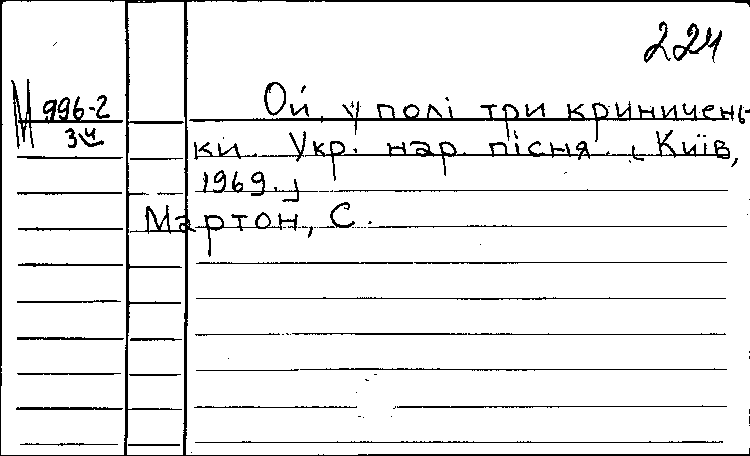 224
М 996-2
3ч
Ой, у полі три криничень-
ки. Укр. нар. пісня. [Київ,
1969.]
Мартон, С.